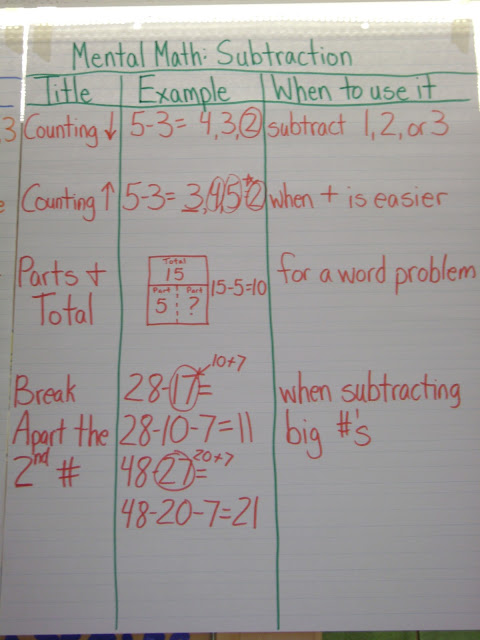 Mental Math: Subtraction
Title Example When to use it
3 Counting ↓ 5-3= 4,3,2 subtract 1,2, or 3
Counting ↑ 5-3= 3,4,5 2 when + is easier
Parts + Total
Total
15
Part Part
5 ?
15-5=10
for a word problem
Break Apart the 2nd #
10+7
28-17=
28-10-7=11
20+7
48-27=
48-20-7=21
when subtracting
big #'s